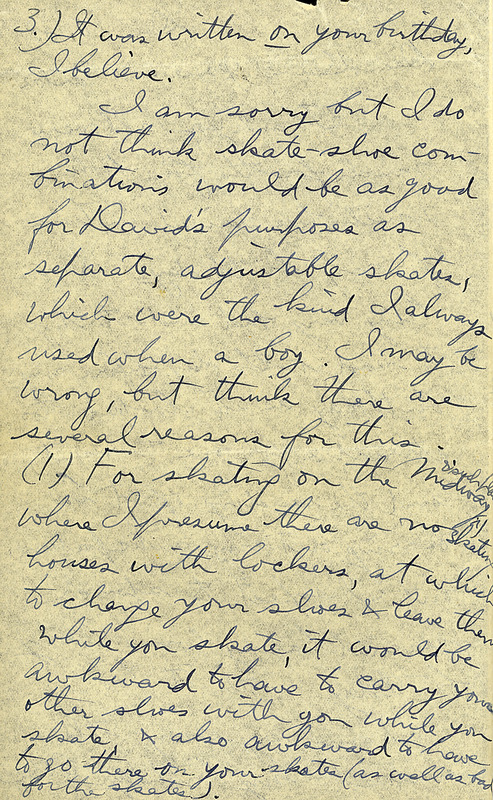 3.) It was written on your birthday,
I believe.
I am sorry but I do
not think skate-shoe com-
binations would be as good
for David's purposes as
separate, adjustable skates,
which were the kind I always
used when a boy. I may be
wrong, but think there are
several reasons for this.
(1.) For skating on the Midway
where I presume there are no skating
houses with lockers, at which
to change your shoes & leave them
while you skate, it would be
awkward to have to carry your
other shoes with you while you
skate, & also awkward to have
to go there on your skates (as well as bad
for the skates).